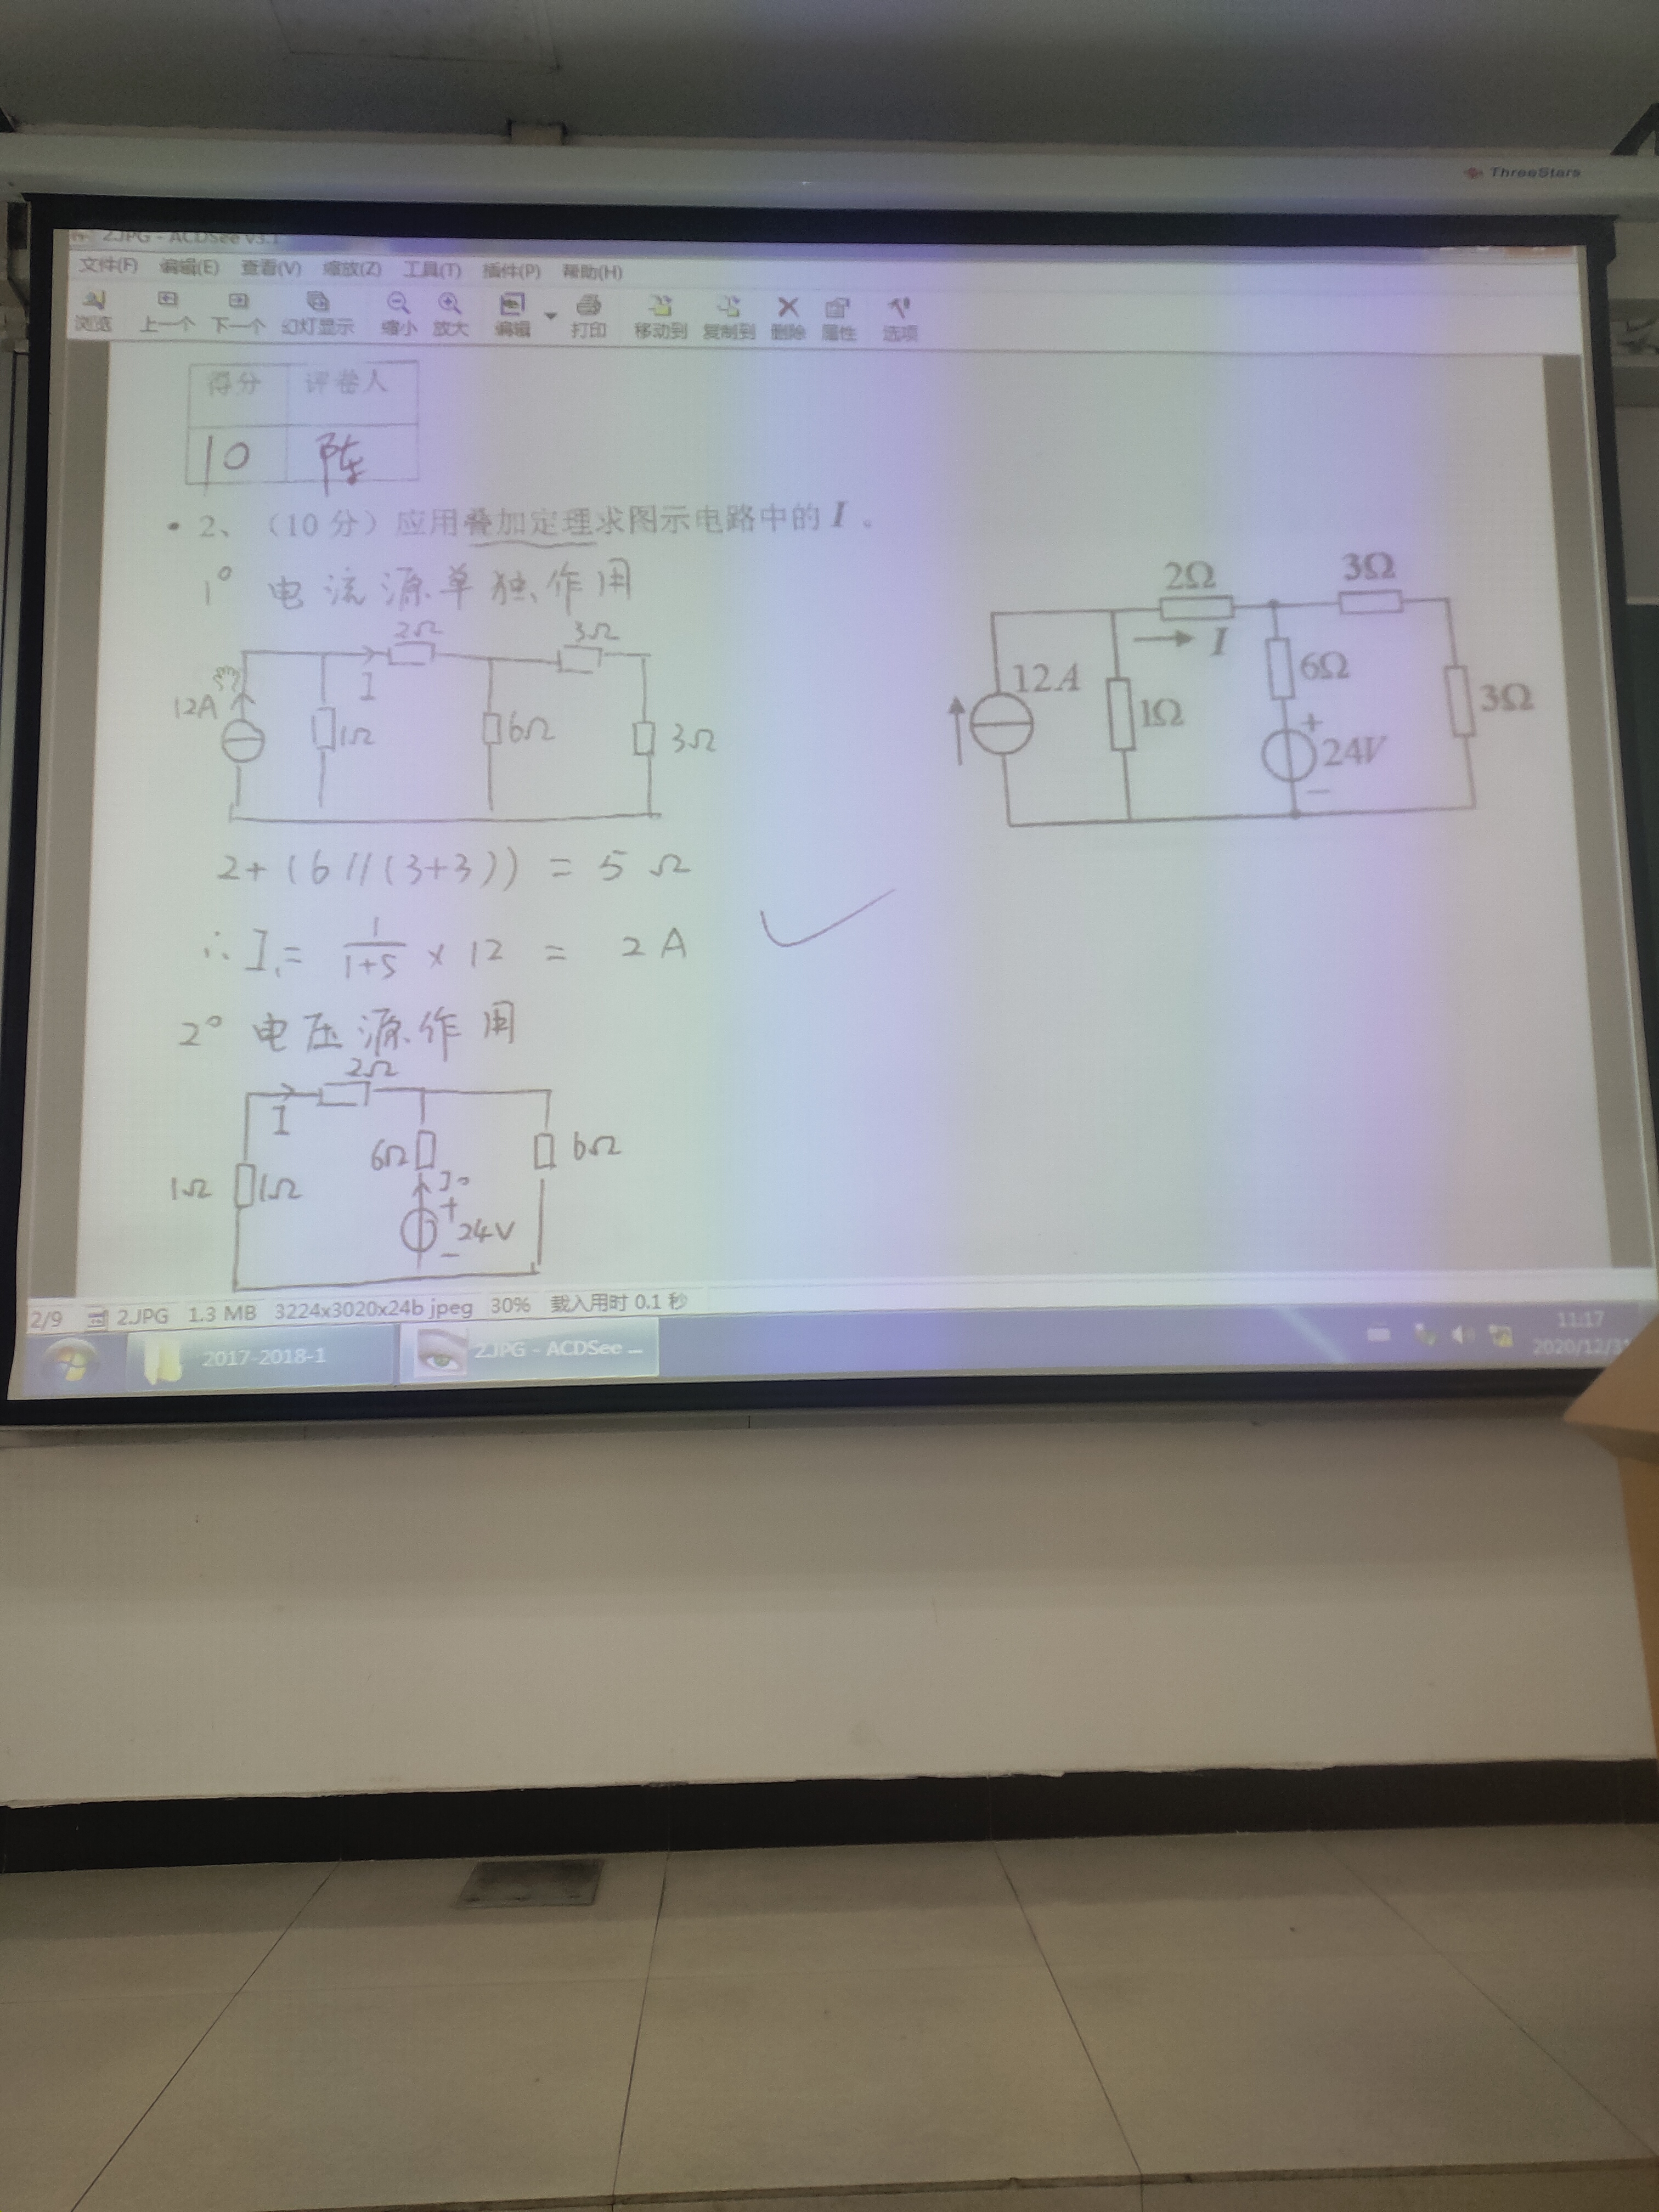 ThreeStars
2.JPG - ACDSee v3.1
文件(F) 编辑(E) 查看(V) 缩放(Z) 工具(T) 插件(P) 帮助(H)
浏览 上一个 下一个 幻灯显示 缩小 放大 编辑 打印 移动到 复制到 删除 属性 选项
得分 评卷人
10 陈
• 2、（10 分）应用叠加定理求图示电路中的 I 。
1° 电流源单独作用
2Ω 3Ω
12A I 1Ω 6Ω 3Ω
2Ω 3Ω
I 6Ω
12A 1Ω 3Ω
+
24V
−
2+(6//(3+3)) = 5 Ω
∴ I₁= 1/(1+5) × 12 = 2 A
2° 电压源作用
2Ω
I 6Ω 6Ω
1Ω 1Ω I₀
+
24V
−
2/9 2.JPG 1.3 MB 3224x3020x24b jpeg 30% 载入用时 0.1 秒
2017-2018-1 2.JPG - ACDSee ...
11:17
2020/12/31